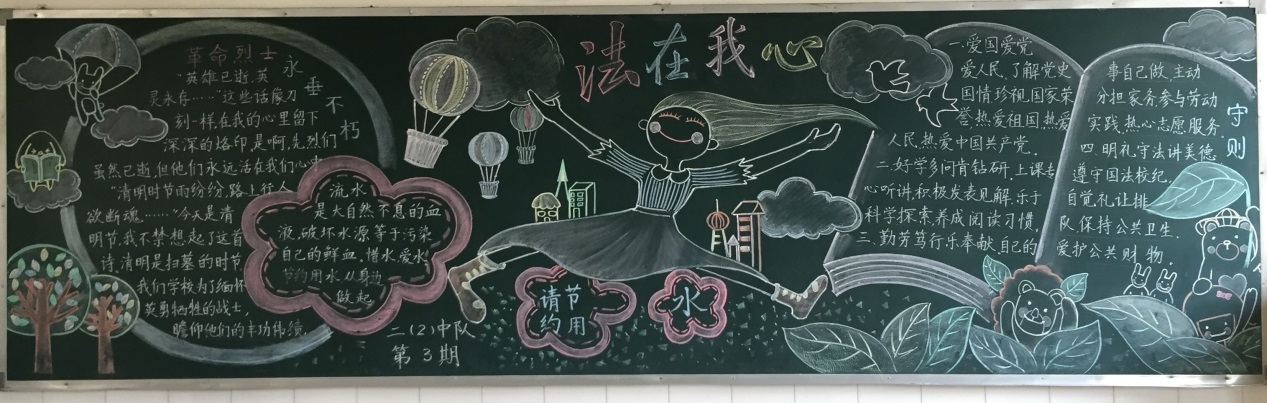 法在我心
革命烈士永垂不朽
"英雄已逝,英
灵永存……"这些话像刀
刻一样在我的心里留下
深深的烙印是啊,先烈们
虽然已逝,但他们永远活在我们心中
"清明时节雨纷纷,路上行人
欲断魂……"今天是清
明节,我不禁想起了这首
诗,清明是扫墓的时节
我们学校为了缅怀
英勇牺牲的战士,
瞻仰他们的丰功伟绩,
流水
是大自然不息的血
液,破坏水源等于污染
自己的鲜血,惜水爱水
节约用水从身边
做起
二(2)中队
第3期
请节
约用
水
一.爱国爱党
爱人民,了解党史
国情珍视国家荣
誉,热爱祖国,热爱
人民,热爱中国共产党.
二.好学多问肯钻研,上课专
心听讲,积极发表见解,乐于
科学探索,养成阅读习惯,
三.勤劳笃行乐奉献,自己的
事自己做,主动
分担家务,参与劳动
实践,热心志愿服务.
四.明礼守法讲美德
遵守国法校纪,
自觉礼让排
队,保持公共卫生,
爱护公共财物.
守则